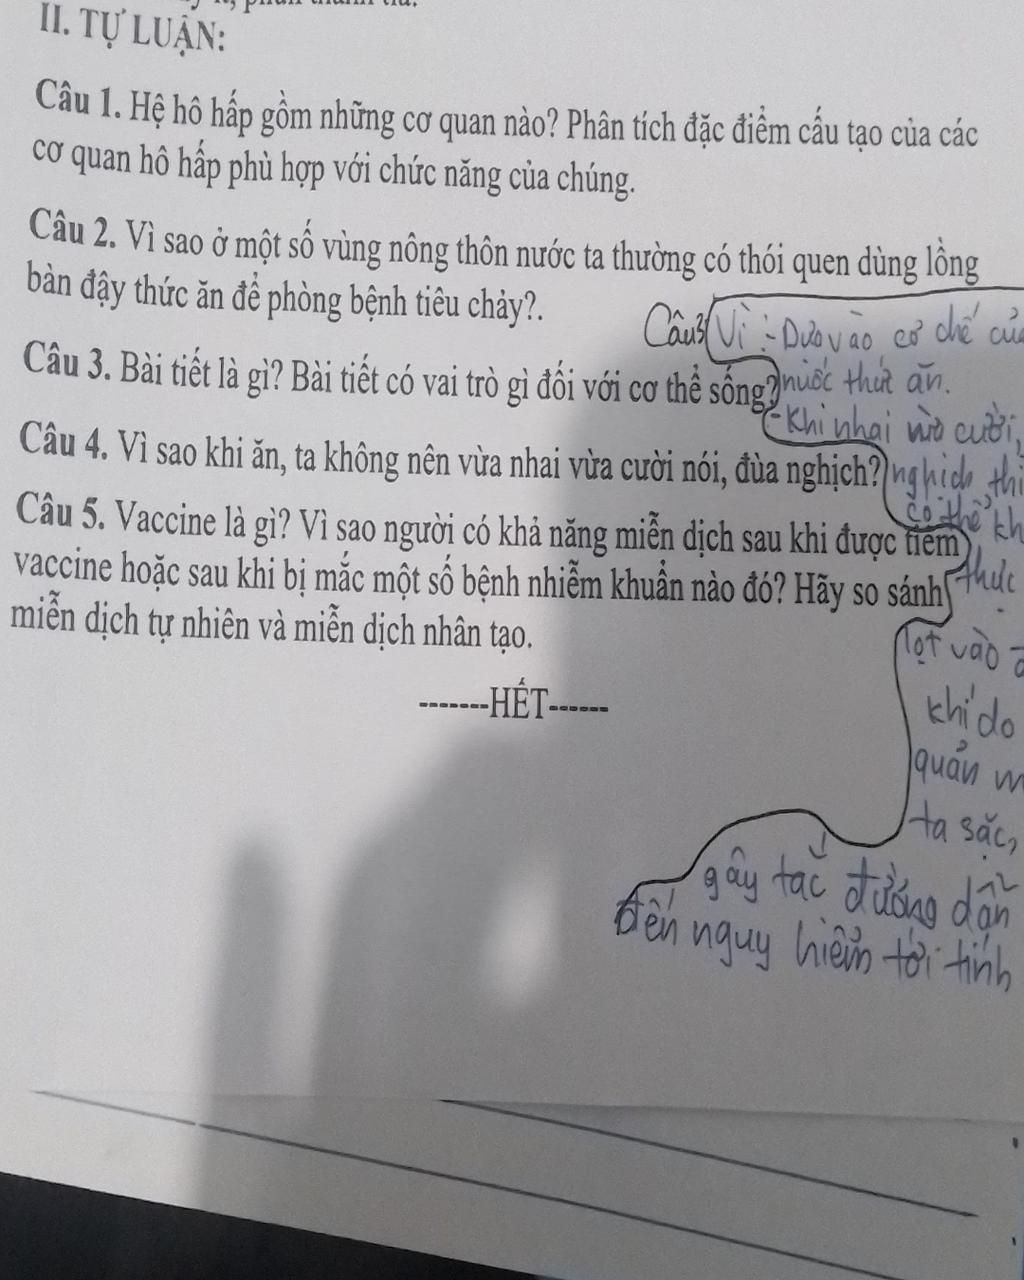 II. TỰ LUẬN:
Câu 1. Hệ hô hấp gồm những cơ quan nào? Phân tích đặc điểm cấu tạo của các
cơ quan hô hấp phù hợp với chức năng của chúng.
Câu 2. Vì sao ở một số vùng nông thôn nước ta thường có thói quen dùng lồng
bàn đậy thức ăn để phòng bệnh tiêu chảy?.
Câu 3. Bài tiết là gì? Bài tiết có vai trò gì đối với cơ thể sống?
Câu 4. Vì sao khi ăn, ta không nên vừa nhai vừa cười nói, đùa nghịch?
Câu 5. Vaccine là gì? Vì sao người có khả năng miễn dịch sau khi được tiêm
vaccine hoặc sau khi bị mắc một số bệnh nhiễm khuẩn nào đó? Hãy so sánh
miễn dịch tự nhiên và miễn dịch nhân tạo.
-------HẾT------
Câu3 Vì :- Dựa vào cơ chế
nuốc thức ăn.
- Khi nhai cười,
nghịch thì
có thể
thức
lọt vào
khí do
quản
ta sặc,
gây tắc đường dẫn
đến nguy hiểm tới tính